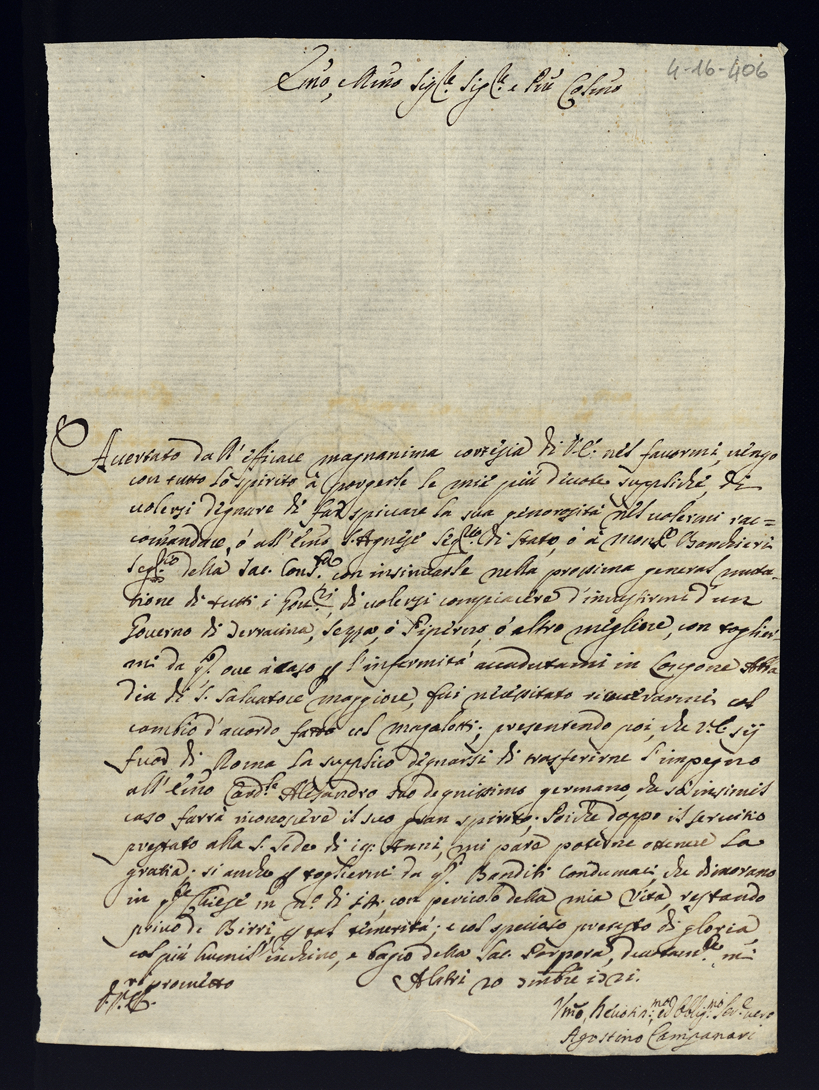 4-16-406
Emo, Rmo Sigre Sigre e Pñe Colmo
Accertato dall'efficace magnanima cortesia di V.E. nel favormi, vengo
con tutto lo spirito à porgerle le mie più divote suppliche, di
volersi degnare di far spiccare la sua generosità nel volermi rac=
comandare, ò all'Emo S. Agnese Segrio di Stato, ò à Monsr Banchieri
Segrio della Sac. Consta con insinuarle nella prossima general muta-
tione di tutti i Gover.ri, di volersi compiacere d'investirmi d'un
Governo di Terracina, Sezza, ò Piperno, ò altro migliore, con toglier
mi da qui ove à caso p l'infermità accadutami in Longone Abba
dia di S. Salvatore maggiore, fui necessitato ricoverarmi col
cambio d'accordo fatto col Magalotti; presentendo poi, che V.E. sij
fuod di Roma La supplico degnarsi di trasferirne l'impegno
all'Emo Cardle Alesandro suo degnissimo germano, che in simil
caso farrà riconoscere il suo gran spirito. Poiche doppo il servitio
prestato alla S. Sede di 19: Anni, mi pare poterne ottenere La
gratia; si anche p togliermi da qti Banditi contumaci, che dimorano
in qte Chiese in no di 14: con pericolo della mia Vita, restando
privo de Birri, p tal temerità; e col specioso pretesto di gloria
col più humil' inchino, e bagio della Sac. Porpora, devotamte mi
riprometto Alatri 20 Xmbre 1721.
V.V.E.
Umo, Devotismo ed Obbligmo Ser. vero
Agostino Campanari